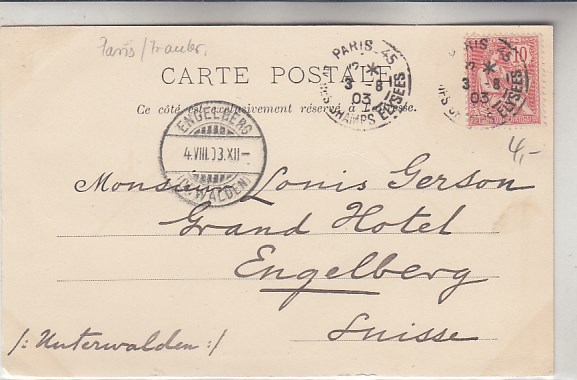 Paris
CARTE POSTALE
Ce côté est exclusivement réservé à l'adresse.
PARIS 45
3 - 8
03
DES CHAMPS ELYSEES
PARIS
3 - 8
03
ELYSEES
10
4,-
ENGELBERG
4.VIII.03.XII-
(UNTERWALDEN)
Monsieur Louis Gerson
Grand Hotel
Engelberg
Suisse
/: Unterwalden :/